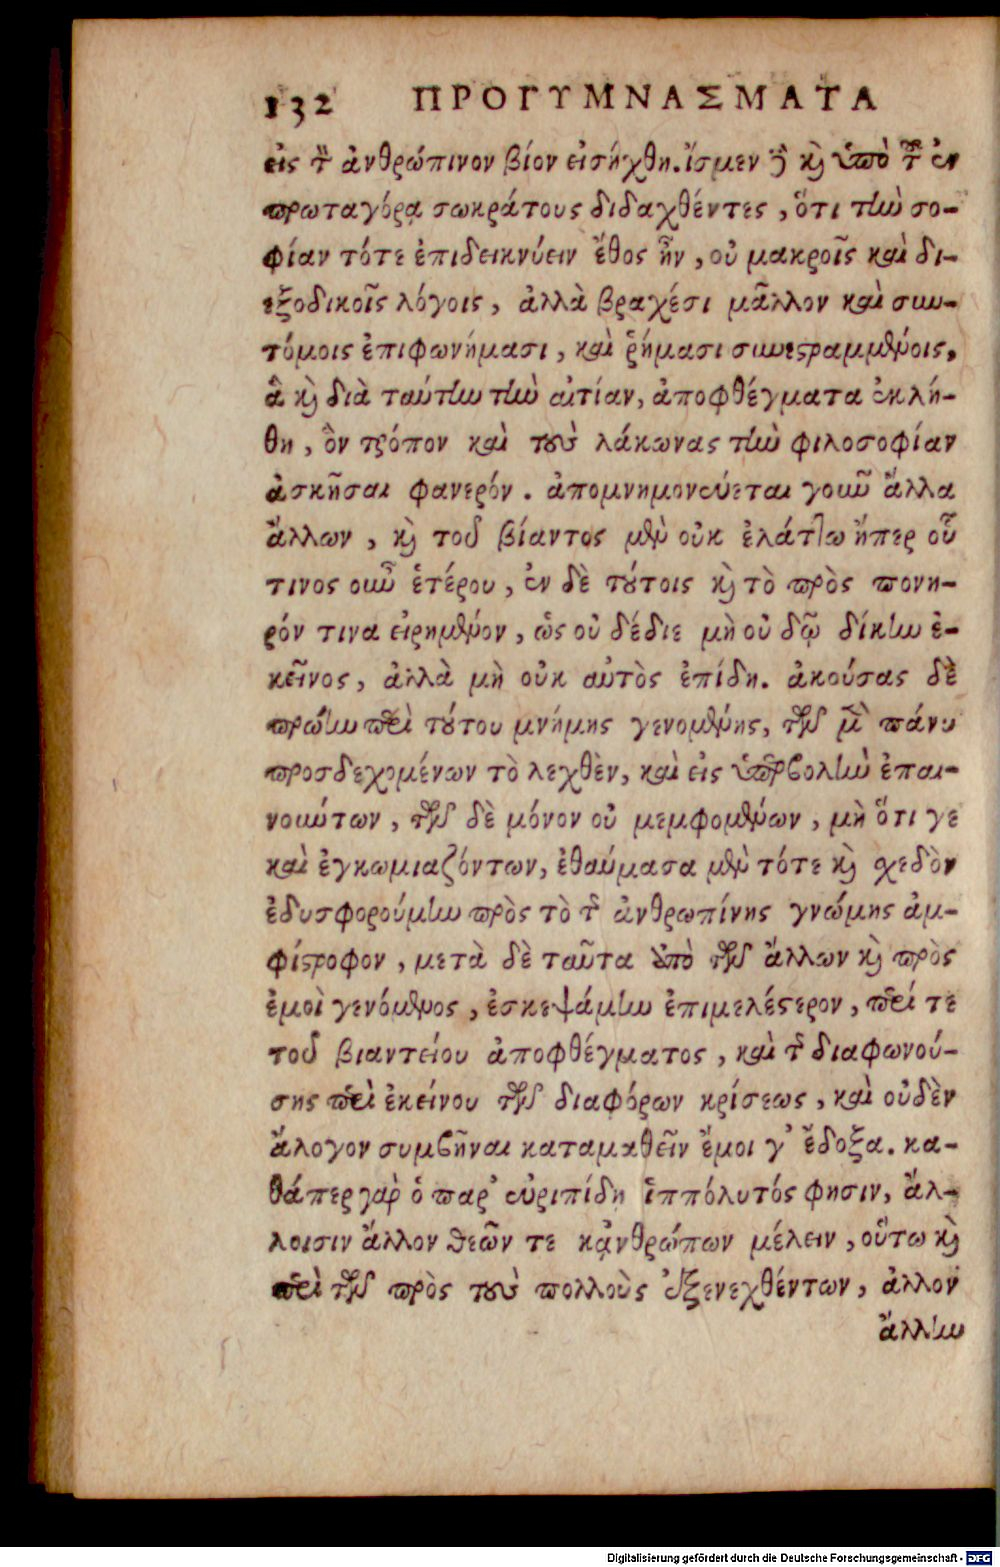 132 ΠΡΟΓΥΜΝΑΣΜΑΤΑ
εἰς τὸν ἀνθρώπινον βίον εἰσήχθη. ἴσμεν γὰρ καὶ ὑπὸ τοῦ ἐν
πρωταγόρᾳ σωκράτους διδαχθέντες, ὅτι τὴν σο-
φίαν τότε ἐπιδεικνύειν ἔθος ἦν, οὐ μακροῖς καὶ δι-
εξοδικοῖς λόγοις, ἀλλὰ βραχέσι μᾶλλον καὶ συν-
τόμοις ἐπιφωνήμασι, καὶ ῥήμασι συνεστραμμένοις,
ἃ καὶ διὰ ταύτην τὴν αἰτίαν, ἀποφθέγματα ἐκλή-
θη, ὃν τρόπον καὶ τοὺς λάκωνας τὴν φιλοσοφίαν
ἀσκῆσαι φανερόν. ἀπομνημονεύεται γοῦν ἄλλα
ἄλλων, καὶ τοῦ βίαντος μὲν οὐκ ἐλάττω ἤπερ οὗ
τινος οὖν ἑτέρου, ἐν δὲ τούτοις καὶ τὸ πρὸς πονη-
ρόν τινα εἰρημένον, ὡς οὐ δέδιε μὴ οὐ δῷ δίκην ἐ-
κεῖνος, ἀλλὰ μὴ οὐκ αὐτὸς ἐπίδη. ἀκούσας δὲ
πρώην περὶ τούτου μνήμης γενομένης, τῶν μὲν πάνυ
προσδεχομένων τὸ λεχθὲν, καὶ εἰς ὑπερβολὴν ἐπαι-
νούντων, τῶν δὲ μόνον οὐ μεμφομένων, μὴ ὅτι γε
καὶ ἐγκωμιαζόντων, ἐθαύμασα μὲν τότε καὶ σχεδὸν
ἐδυσφορούμην πρὸς τὸ τῆς ἀνθρωπίνης γνώμης ἀμ-
φίστροφον, μετὰ δὲ ταῦτα ἀπὸ τῶν ἄλλων καὶ πρὸς
ἐμοὶ γενόμενος, ἐσκεψάμην ἐπιμελέστερον, περί τε
τοῦ βιαντείου ἀποφθέγματος, καὶ τῆς διαφωνού-
σης περὶ ἐκείνου τῶν διαφόρων κρίσεως, καὶ οὐδὲν
ἄλογον συμβῆναι καταμαθεῖν ἔμοι γ' ἔδοξα. κα-
θάπερ γὰρ ὁ παρ' εὐριπίδῃ ἱππόλυτός φησιν, ἄλ-
λοισιν ἄλλον θεῶν τε κᾀνθρώπων μέλειν, οὕτω καὶ
περὶ τῶν πρὸς τοὺς πολλοὺς ἐξενεχθέντων, ἄλλον
ἄλλην
Digitalisierung gefördert durch die Deutsche Forschungsgemeinschaft - DFG